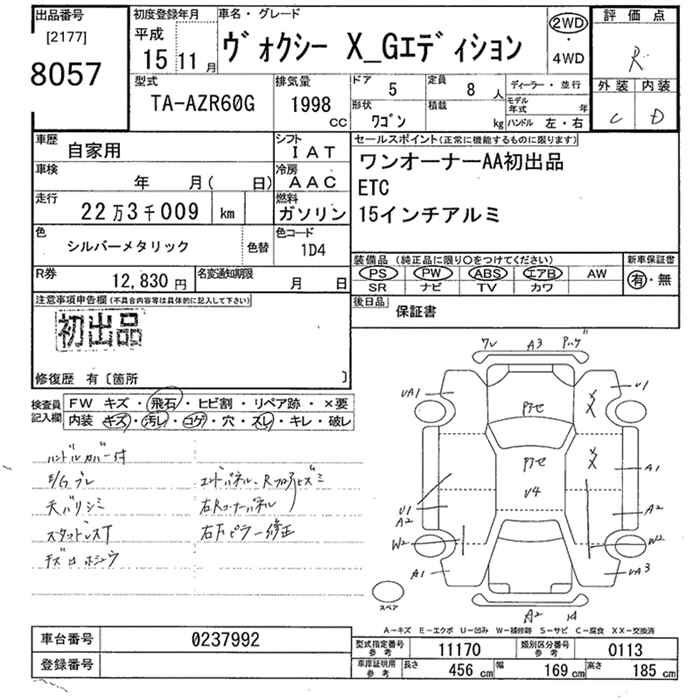 出品番号
[2177]
8057
初度登録年月
平成
15 11 月
車名・グレード
ヴォクシー X_Gエディション
2WD
・
4WD
評価点
R
外装 内装
C D
型式
TA-AZR60G
排気量
1998 CC
ドア 5
定員 8 人
形状 ワゴン
積載 kg
ディーラー・並行
モデル年式 年
ハンドル 左・右
車歴 自家用
シフト IAT
車検 年 月( 日)
冷房 AAC
走行 22万3千009 km
燃料 ガソリン
色 シルバーメタリック 色替
色コード 1D4
R券 12,830円
名変通知期限 月 日
セールスポイント(正常に機能するものに限ります)
ワンオーナーAA初出品
ETC
15インチアルミ
装備品 (純正品に限り○をつけてください)
新車保証書
PS PW ABS エアB AW
有・無
SR ナビ TV カワ
後日品 保証書
注意事項申告欄(不具合内容等は具体的に記入して下さい)
初出品
修復歴 有〔箇所 〕
検査員記入欄
FW キズ・飛石・ヒビ割・リペア跡・×要
内装 キズ・汚レ・コゲ・穴・スレ・キレ・破レ
ハンドルカバー付
E/Gブレ
天バリシミ
スタッドレスT
エンドパネル、Rフロアヒズミ
右Rコーナーパネル
右Fピラー修正
ワレ A3
UA1
U1
アセ
XX
アセ
XX
A1
U4
U1
A2
A2
W2
W2
A1
UA3
スペア
A2
A-キズ E-エクボ U-凹み W-補修跡 S-サビ C-腐食 XX-交換済
車台番号 0237992
登録番号
型式指定番号 参考 11170
類別区分番号 参考 0113
車庫証明用 参考 長さ 456 cm 幅 169 cm 高さ 185 cm